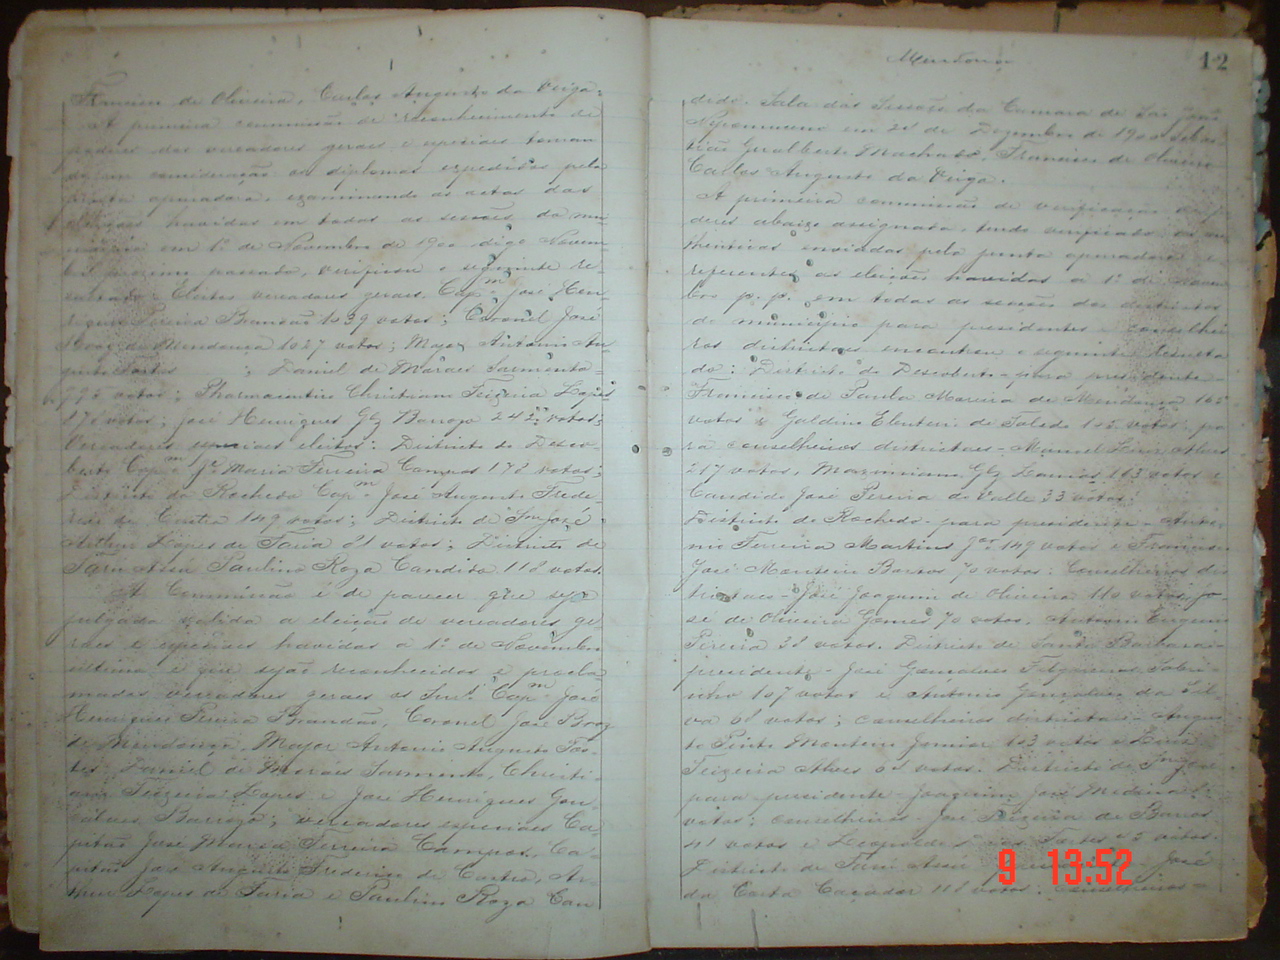 Francisco de Oliveira, Carlos Augusto da Veiga.
A primeira commissão de reconhecimento de
poderes dos vereadores geraes e especiaes toman
do em consideração os diplomas expedidos pela
junta apuradora, examinando as actas das
eleições havidas em todas as sessões do mu
nicipio em 1º de Novembro de 1900 digo Novem
bro proximo passado, verificou o seguinte re-
sultado: Eleitos vereadores geraes, Capm José Hen-
riques Pereira Brandão 1039 votos; Coronel José
Braz de Mendonça 1027 votos; Major Antonio Au-
gusto Fortes ; Daniel de Moraes Sarmento
votos; Pharmaceutico Christiano Teixeira Lopes
votos; José Henriques Glz Barroso 242 votos;
Vereadores especiaes eleitos: Districto do Desco-
berto Capm Jé Maria Ferreira Campos 178 votos;
Districto do Rochedo Capm José Augusto Frede-
rico de Castro 149 votos; Districto de S. José
Arthur Lopes de Faria 81 votos; Districto de
Taru Assu Paulino Roza Candido 118 votos.
A Commissão é de parecer que seja
julgada valida a eleição de vereadores ge
raes e especiaes havidas a 1º de Novembro
ultimo e que sejão reconhecidos e procla
mados vereadores geraes os Snrs. Capm José
Henriques Pereira Brandão, Coronel José Braz
de Mendonça, Major Antonio Augusto For-
tes, Daniel de Moraes Sarmento, Christi-
ano Teixeira Lopes e José Henriques Gon-
çalves Barroso; vereadores especiaes Ca
pitão José Maria Ferreira Campos, Ca-
pitão José Augusto Frederico de Castro, Ar-
thur Lopes de Faria e Paulino Roza Can
Mendonça
12
dido. Sala das Sessões da Camara de São João
Nepomuceno em de Dezembro de 1900. Sebas
tião Geralberto Machado, Francisco de Oliveira
Carlos Augusto da Veiga.
A primeira commissão de verificação de po
deres abaixo assignada, tendo verificado as au
thenticas enviadas pela junta apuradora e
referentes as eleições havidas a 1º de Novem
bro p. p. em todas as sessões dos districtos
do municipio para presidentes e conselhei
ros districtaes encontrou o seguinte resulta
do: Districto do Descoberto - para presidente -
Francisco de Paula Moreira de Mendonça 165
votos e Galdino Eleuterio de Toledo votos; pa
ra conselheiros districtaes - Manoel Alves
217 votos, Maximiano Glz 163 votos e
Candido José Pereira do Valle 33 votos.
Districto do Rochedo - para presidente - Anto
nio Ferreira Martins Jor. 149 votos e Francisco
José Monteiro Barros 70 votos. Conselheiros dis
trictaes - José Joaquim de Oliveira 110 votos, Jo
sé de Oliveira Gomes 70 votos, Antonio Eugenio
Pereira 38 votos. Districto de Santa Barbara -
presidente - José Gonçalves Filgueiras Sobri
nho 107 votos e Antonio Gonçalves da Sil
va votos; conselheiros districtaes - Augus
to Pinto Monteiro Junior 103 votos e
Teixeira Alves votos. Districto de S. José
para presidente - Joaquim José Medina
votos; conselheiros - José Pereira de Barros
41 votos e Leopoldo Fortes votos.
Districto de Taru Assu José
da Costa Caçador 118 votos. Conselheiros -
9 13:52